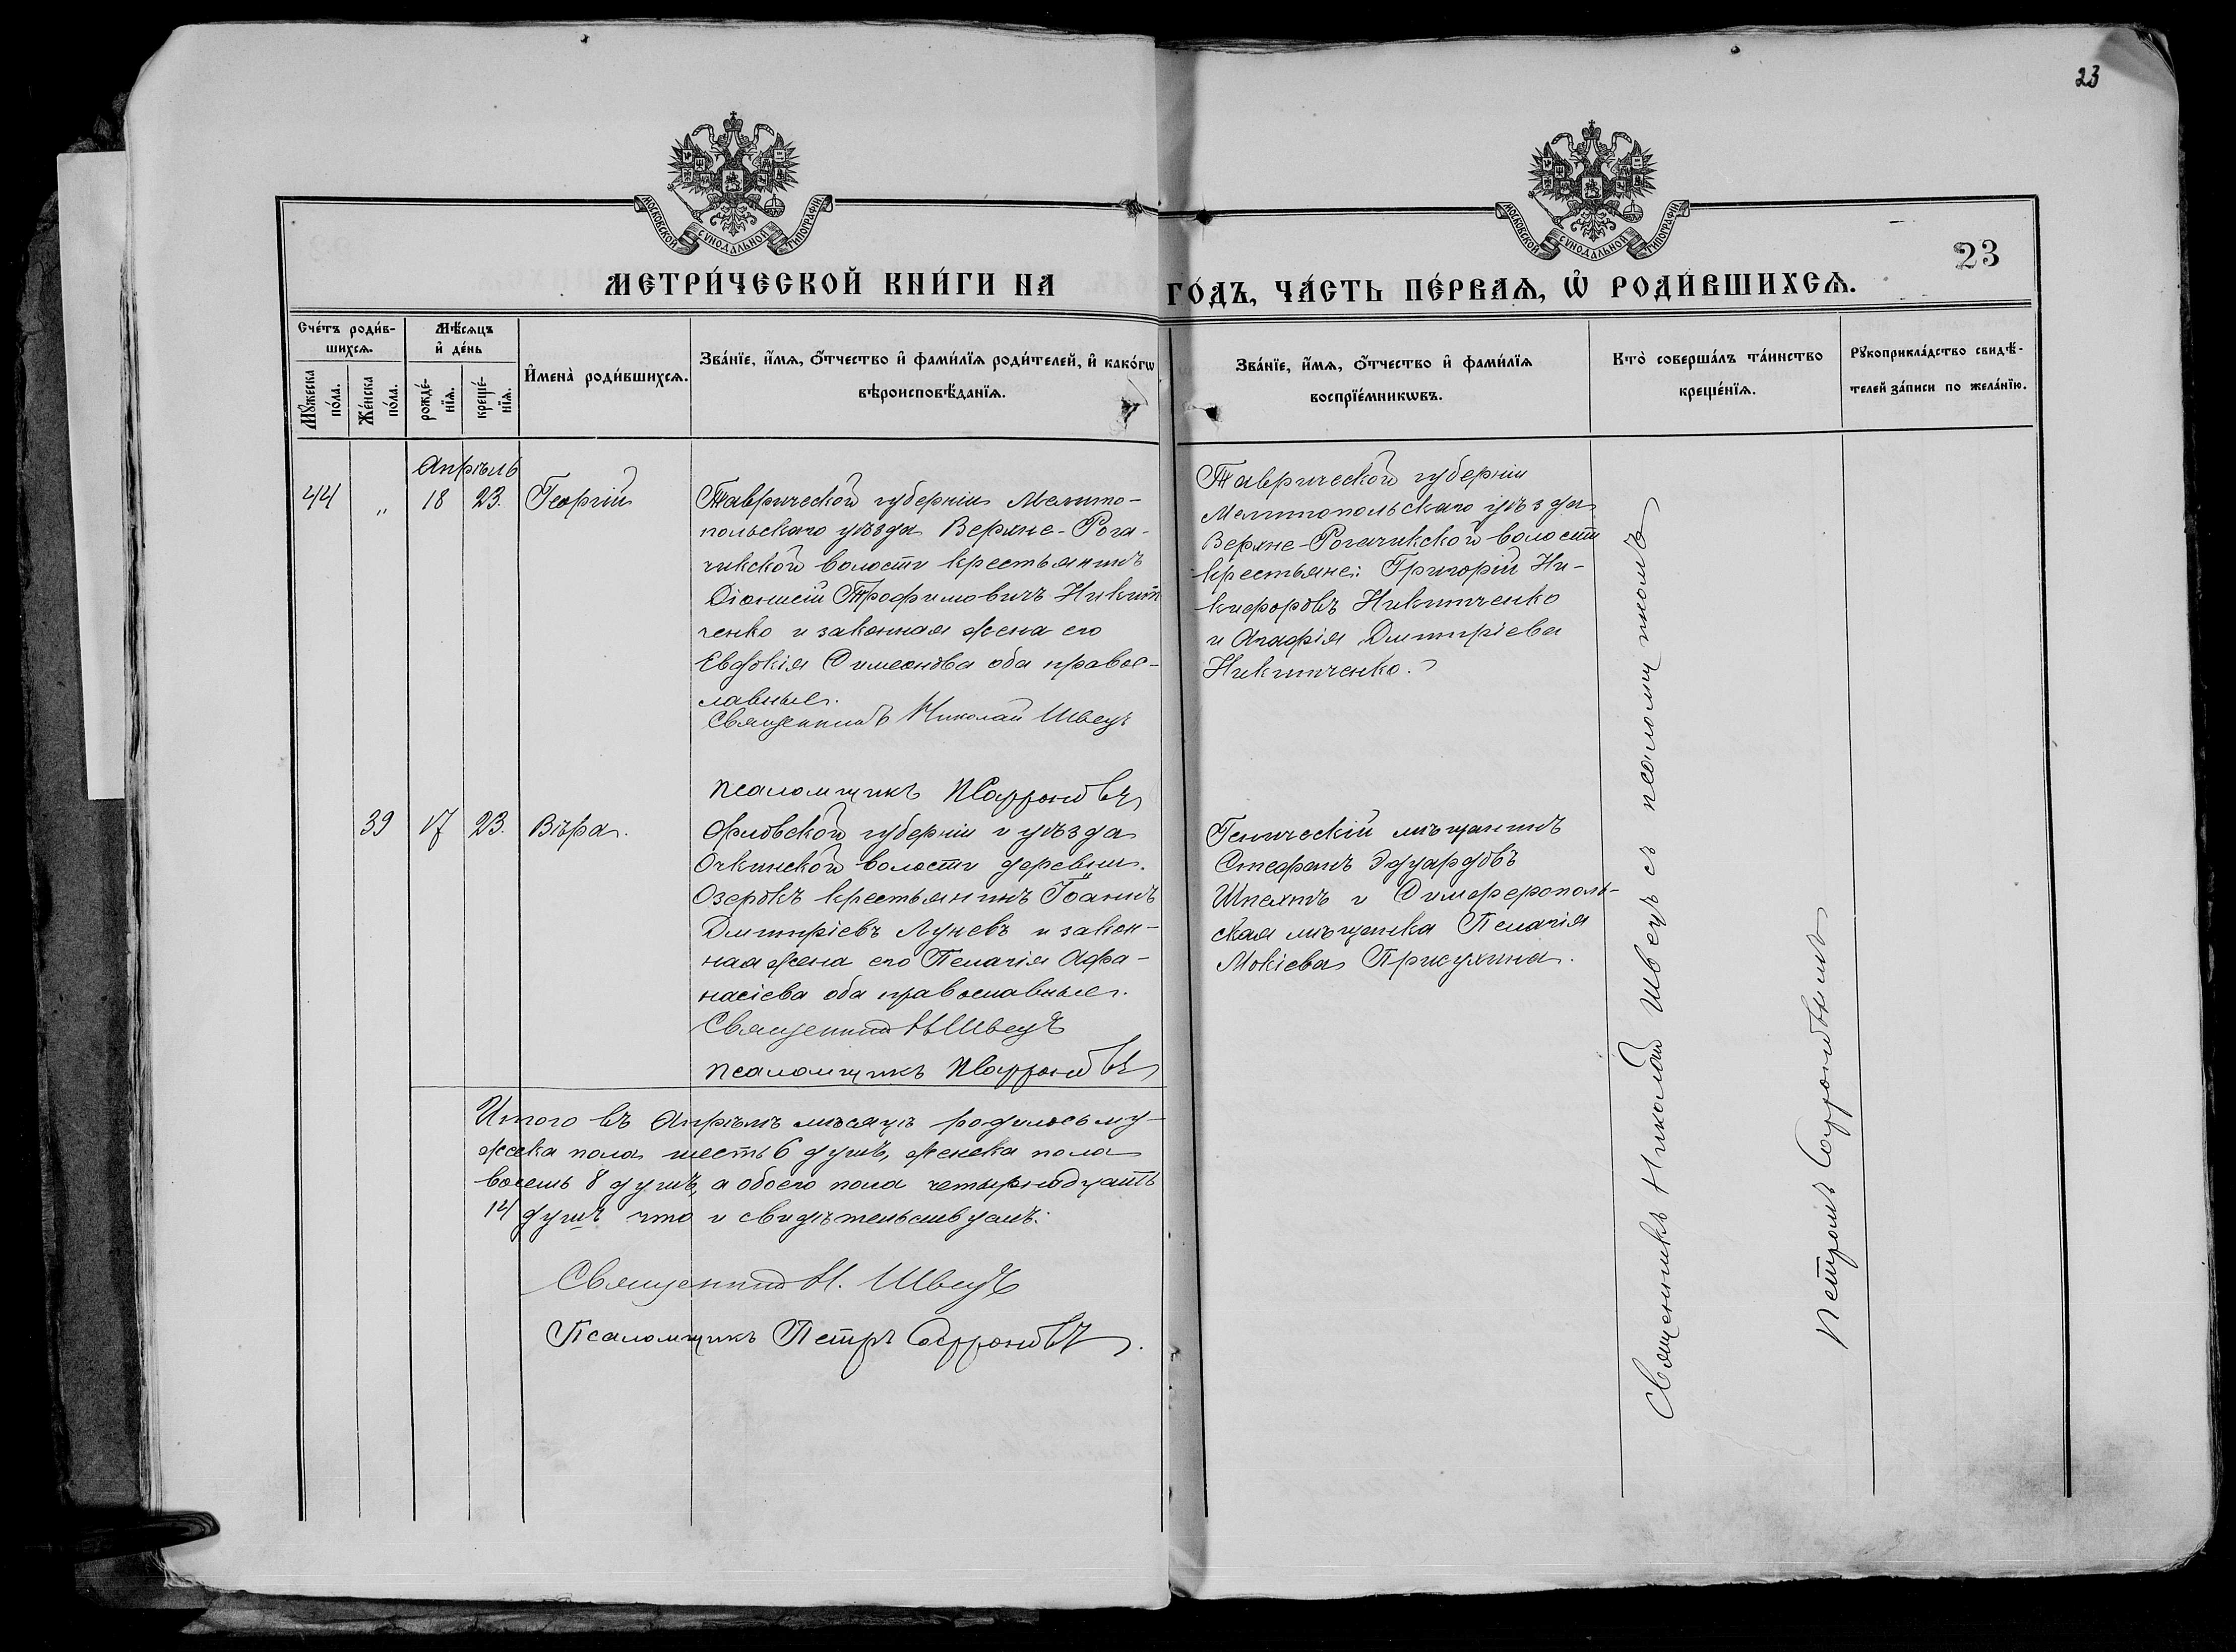 23
МОСКОВСКОЙ СѴНОДАЛЬНОЙ ТИПОГРАФІИ
МОСКОВСКОЙ СѴНОДАЛЬНОЙ ТИПОГРАФІИ
23
МЕТРИ́ЧЕСКОЙ КНИ́ГИ НА ГО́ДЪ, ЧА́СТЬ ПЕ́РВАѦ, Ѡ҆ РОДИ́ВШИХСѦ.
Сче́тъ роди́в-
шихсѧ.
Мꙋ́жеска по́ла.
Же́нска по́ла.
Мѣ́сѧцъ
и҆ де́нь
рожде́-
нїѧ.
креще́-
нїѧ.
И҆мена̀ роди́вшихсѧ.
Зва́нїе, и҆́мѧ, ѻ҆́тчество и҆ фами́лїѧ роди́телей, и҆ како́гѡ
вѣроисповѣ́данїѧ.
Зва́нїе, и҆́мѧ, ѻ҆́тчество и҆ фами́лїѧ
воспрїе́мникѡвъ.
Кто̀ соверша́лъ та́инство
креще́нїѧ.
Рꙋкоприкла́дство свидѣ́-
телей за́писи по жела́нїю.
Апрѣль
44 " 18 23. Георгій
Таврической губерніи Мелито-
польскаго уѣзда Верхне-Рога-
чикской волости крестьянинъ
Діонисій Трофимовичъ Никит
ченко и законная жена его
Евдокія Симеонова оба право-
славные.
Священникъ Николай Швецъ
Псаломщикъ ПСофроновъ
Таврической губерніи
Мелитопольскаго уѣзда
Верхне-Рогачикской волости
крестьяне: Григорій Ни-
кифоровъ Никитченко
и Агафія Димитріева
Никитченко.
39 17 23. Вѣра.
Орловской губерніи и уѣзда
волости деревни
Озерокъ крестьянинъ Іоаннъ
Димитріевъ Луневъ и закон-
ная жена его Пелагія Афа-
насіева оба православные.
Священникъ Н Швецъ
Псаломщикъ ПСофроновъ
Геническій мѣщанинъ
Стефанъ Эдуардовъ
Шпехтъ и Симферополь-
ская мѣщанка Пелагія
Мокіева
Священникъ Николай Швецъ съ псаломщикомъ
Петромъ Софроновымъ
Итого въ Апрѣлѣ мѣсяцѣ родилось му-
жеска пола шесть 6 душъ, женска пола
восемь 8 душъ, а обоего пола четырнадцать
14 душъ что и свидѣтельствуемъ:
Священникъ Н. Швецъ
Псаломщикъ Петръ Софроновъ.